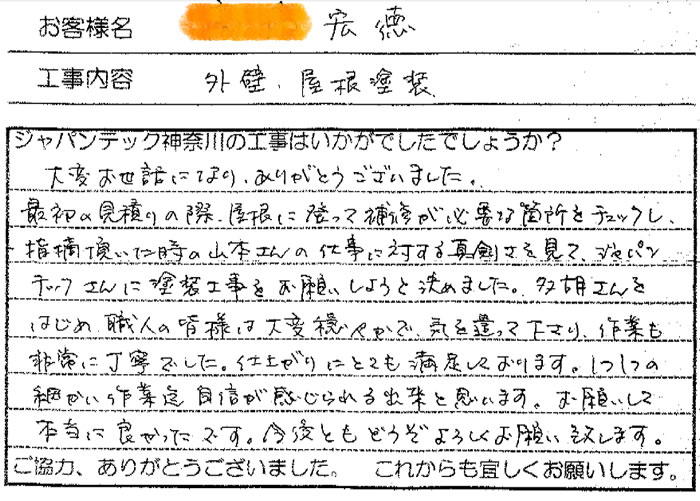 お客様名 宏徳
工事内容 外壁、屋根塗装
ジャパンテック神奈川の工事はいかがでしたでしょうか？
大変お世話になり、ありがとうございました。
最初の見積りの際、屋根に登って補修が必要な箇所をチェックし、
指摘頂いた時の山本さんの仕事に対する真剣さを見て、ジャパン
テックさんに塗装工事をお願いしようと決めました。多胡さんを
はじめ、職人の皆様は大変穏やかで、気を遣って下さり、作業も
非常に丁寧でした。仕上がりにとても満足しております。1つ1つの
細かい作業迄自信が感じられる出来と思います。お願いして
本当に良かったです。今後ともどうぞよろしくお願い致します。
ご協力、ありがとうございました。 これからも宜しくお願いします。